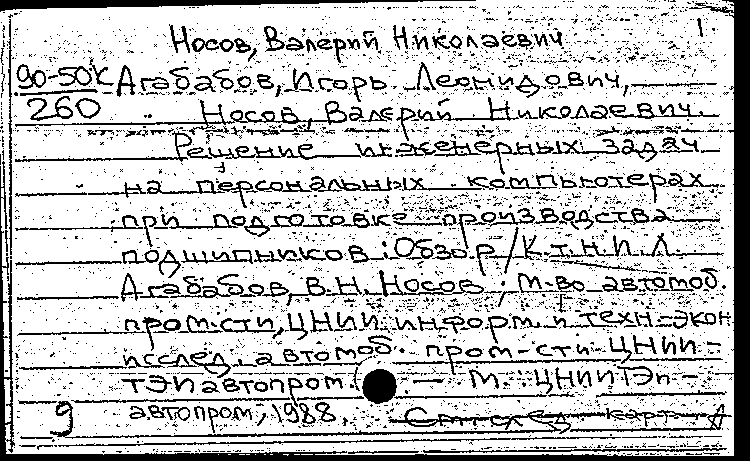 1
Носов, Валерий Николаевич
90-50К Агабабов, Игорь Леонидович,
260 Носов, Валерий Николаевич.
Решение инженерных задач
на персональных компьютерах
при подготовке производства
подшипников : Обзор / К.т.н. И.Л.
Агабабов, В.Н. Носов ; М-во автомоб.
пром-сти, ЦНИИ информ. и техн-экон
исслед. автомоб. пром-сти ЦНИИ-
ТЭИавтопром. — М. : ЦНИИТЭИ-
9 автопром, 1988. См. след. карт.